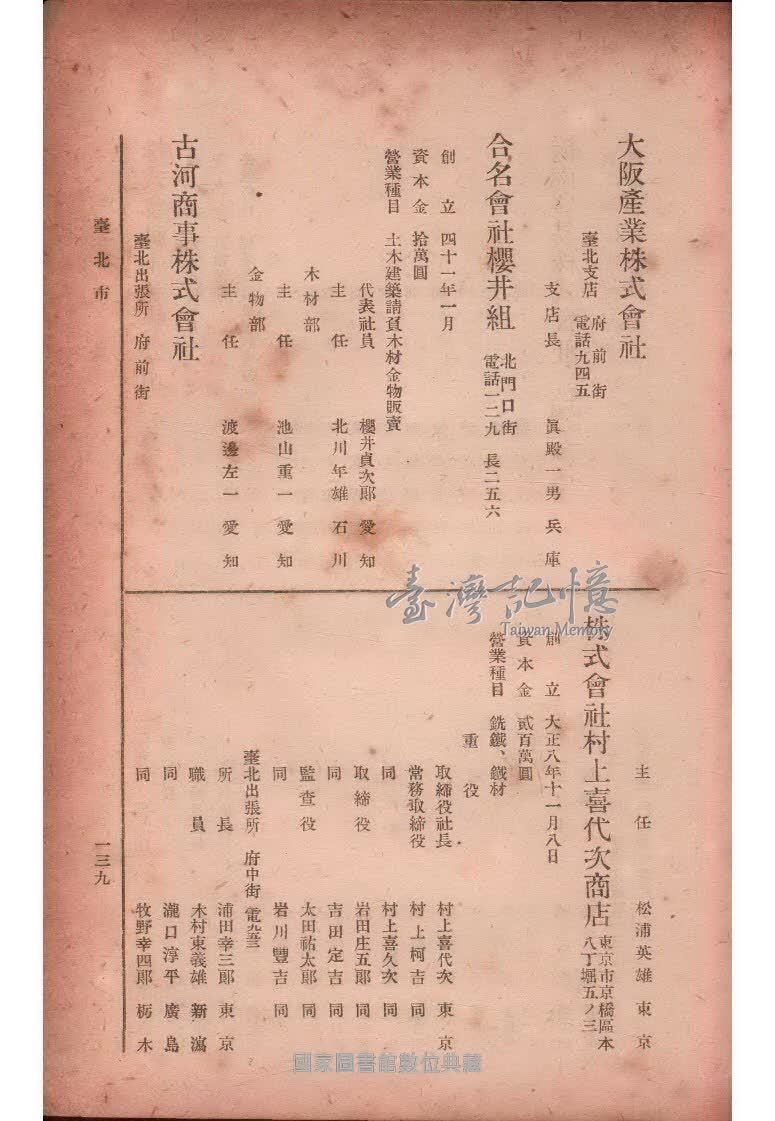 大阪產業株式會社
臺北支店 府前街
電話九四五
支店長 眞殿一男 兵庫
合名會社櫻井組 北門口街
電話一二九 長二五六
創立 四十一年一月
資本金 拾萬圓
營業種目 土木建築請負木材金物販賣
代表社員 櫻井貞次郞 愛知
主任 北川年雄 石川
木材部
主任 池山重一 愛知
金物部
主任 渡邊左一 愛知
古河商事株式會社
臺北出張所 府前街
主任 松浦英雄 東京
株式會社村上喜代次商店 東京市京橋區本
八丁堀五ノ三
創立 大正八年十一月八日
資本金 貳百萬圓
營業種目 銑鐵、鐵材
重役
取締役社長 村上喜代次 東京
常務取締役 村上柯吉 同
同 村上喜久次 同
取締役 岩田庄五郞 同
同 吉田定吉 同
監查役 太田祐太郞 同
同 岩川豐吉 同
臺北出張所 府中街
所長 浦田幸三郞 東京
職員 木村東義雄 新瀉
同 瀧口淳平 廣島
同 牧野幸四郞 栃木
臺北市
一三九
臺灣記憶
Taiwan Memory
國家圖書館數位典藏